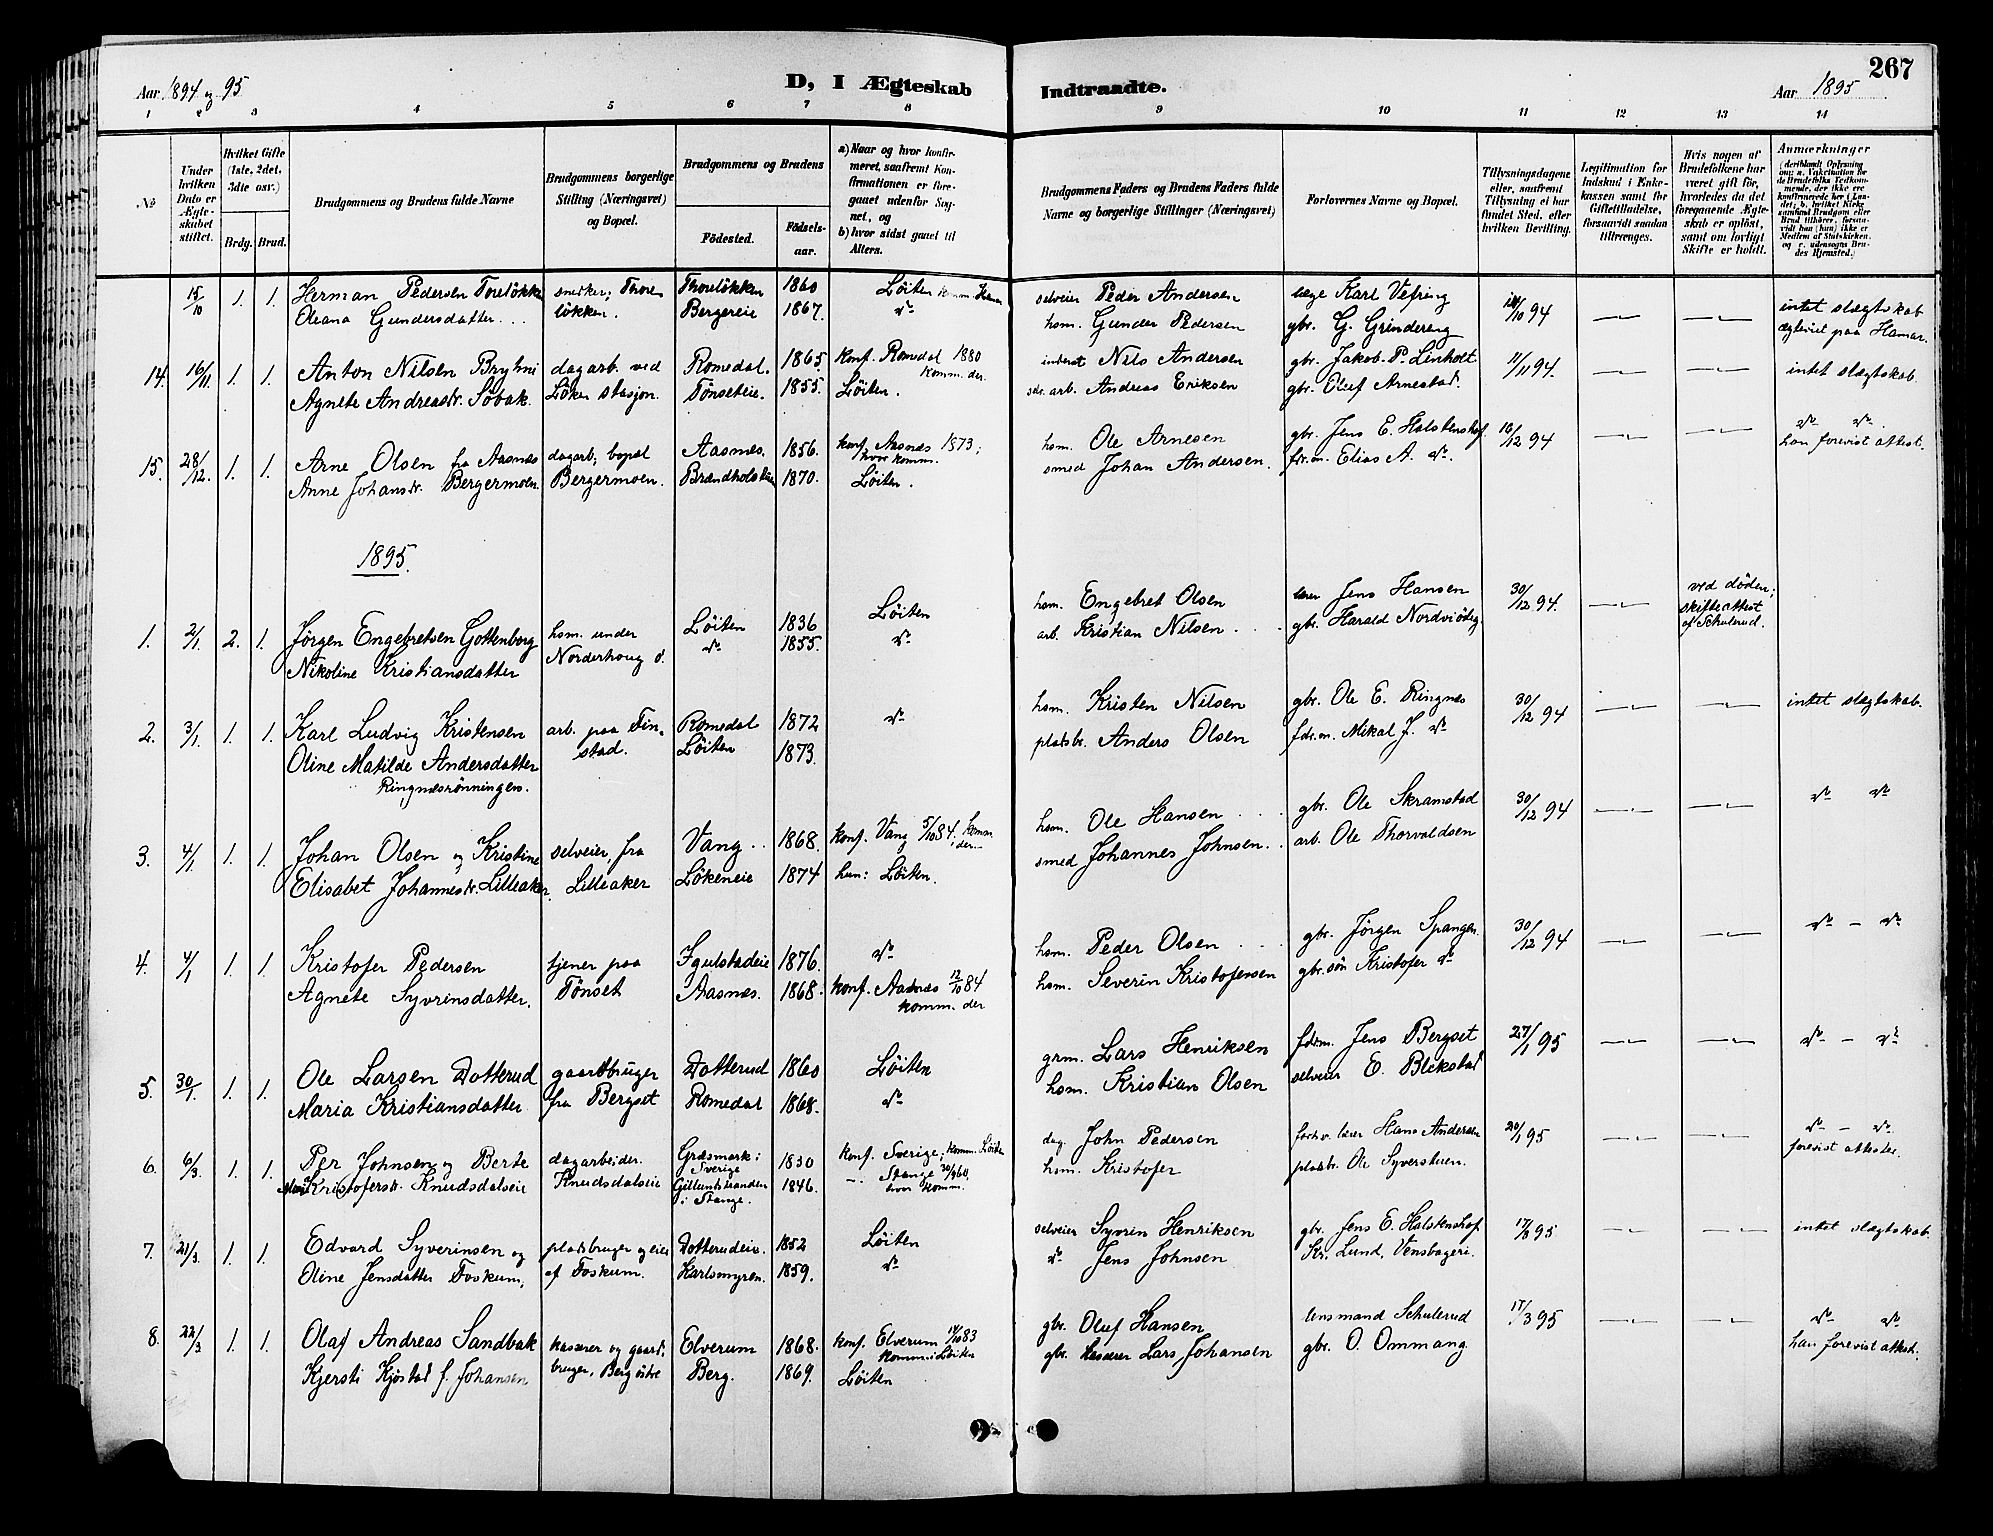 267
Aar 1894 og 95
D, I Ægteskab Indtraadte.
Aar 1895
1 2 3 4 5 6 7 8 9 10 11 12 13 14
No
Under hvilken Dato er Ægteskabet stiftet.
Hvilket Gifte (1ste, 2det, 3die osv.)
Brdg. Brud.
Brudgommens og Brudens fulde Navne
Brudgommens borgerlige Stilling (Næringsvei) og Bopæl.
Brudgommens og Brudens
Fødested.
Fødselsaar.
a) Naar og hvor konfirmeret, saafremt Konfirmationen er foregaaet udenfor Sognet, og
b) hvor sidst gaaet til Alters.
Brudgommens Faders og Brudens Faders fulde Navne og borgerlige Stillinger (Næringsvei)
Forlovernes Navne og Bopæl.
Tillysningsdagene eller, saafremt Tillysning ei har fundet Sted, efter hvilken Bevilling.
Legitimation for Indskud i Enkekassen samt for Giftetilladelse, forsaavidt saadan tiltrænges.
Hvis nogen af Brudefolkene har været gift før, hvorledes da det foregaaende Ægteskab er opløst, samt om lovligt Skifte er holdt.
Anmærkninger
15/10 1. 1. Herman Pedersen Toreløkken snekker; Thoreløkken 1860 Løiten selveier Peder Andersen læge Karl Vefring 14/10 94 intet slægtskab
Oleana Gundersdatter løkken. Bergereie 1867. do hsm. Gunder Pedersen gbr. G. Grindereng ægteviet paa Hamar.
14. 16/11. 1. 1. Anton Nilsen Bryhni dagarb. ved Romedal. 1865. konf. Romedal 1880 komm. der. inderst Nils Andersen gbr. Jakob P. Linholt 11/11 94. intet slægtskab.
Agnete Andreasdr. Søbak. Løken stasjon. Tønseteie. 1855. Løiten. arb. Andreas Eriksen gbr. Oluf Arnestad.
15. 28/12. 1. 1. Arne Olsen fra Aasnæs dagarb; bopæl Aasnæs. 1856. konf. Aasnæs 1873; hvor komm. hsm. Ole Arnesen gbr. Jens E. Halstenshof 16/12 94 do do. han forevist attest.
Anne Johansdr. Bergermoen. Bergermoen. 1870. Løiten. smed Johan Andersen. fdr.m. Elias A. do.
1895.
1. 2/1. 2. 1. Jørgen Engebretsen Gottenborg hsm. under Løiten 1836 Løiten hsm. Engebret Olsen lærer Jens Hansen 30/12 94. ved døden; skifteattest af Schulerud.
Nikoline Kristiansdatter Norderhoug ø. do 1855. do arb. Kristian Nilsen gbr. Harald
2. 3/1. 1. 1. Karl Ludvig Kristensen arb. paa Fin- Romedal 1872 do hsm. Kristen Nilsen gbr. Ole E. Ringnes 30/12 94 intet slægtskab.
Oline Matilde Andersdatter stad. Løiten 1873. pladsbr. Anders Olsen fdr.m. Mikal J. do
Ringnæsrönningen.
3. 4/1 1. 1. Johan Olsen og Kristine selveier, fra Vang 1868. konf. Vang 5/10 84. komm. der hsm. Ole Hansen gbr. Ole Skramstad 30/12 94 do do
Elisabet Johannesdr. Lilleaker. Lilleaker Løkeneie 1874 hun: Løiten. smed Johannes Johnsen arb. Ole Thorvaldsen
4. 4/1 1. 1. Kristofer Pedersen tjener paa Igulstadeie 1876. do hsm. Peder Olsen gbr. Jørgen Spangen 30/12 94 do - do
Agnete Syvrinsdatter. Tønset Aasnæs. 1868. konf. Aasnæs 12/10 84 komm. der hsm. Severin Kristofersen gbr. søn Kristofer do
5. 30/1. 1. 1. Ole Larsen Dotterud gaardbruger Dotterud 1860 Løiten grm. Lars Henriksen fdrm. Jens Bergset 27/1 95 do - do
Maria Kristiansdatter fra Bergset Romedal 1868. do hsm. Kristian Olsen selveier E. Blekstad
6. 6/3. 1. 1. Per Johnsen og Berte dagarbeider. Græsmark i Sverige 1830 konf. Sverige; komm. Løiten dag. John Pedersen lærer Hans Andersen 20/1 95 do - do. forevist attester.
Kristofersdr. Knudsdalseie Knudsdalseie i Stange. 1846. Stange hvor komm. hsm. Kristofer pladsbr. Ole Syverstuen.
7. 21/3. 1. 1. Edvard Syverinsen og pladsbruger og eier Dotterudeie. 1852 Løiten selveier Syvrin Henriksen gbr. Jens E. Halstenshof 17/3 95 intet slægtskab.
Oline Jensdatter Foskum. af Foskum. Karlsmyren. 1859. do do Jens Johnsen Kr. Lund, Vensbageri.
8. 22/3 1. 1. Olaf Andreas Sandbak kasserer og gaard- Elverum 1868. konf. Elverum 14/10 83 komm. i Løiten gbr. Oluf Hansen lensmand Schulerud 17/3 95 do do han forevist attest.
Kjersti Kjøstad f. Johansen bruger, Berg østre Berg. 1869. Løiten gbr. kasserer Lars Johansen gbr. O. Ommang